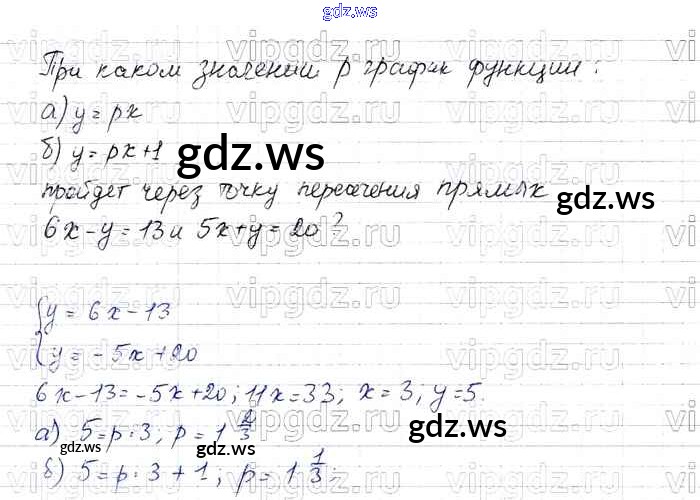 gdz.ws
При каком значении p график функции:
а) y = px
б) y = px+1
gdz.ws
пройдет через точку пересечения прямых
gdz.ws
6x-y = 13 и 5x+y = 20?
{y = 6x-13
{y = -5x+20
6x-13=-5x+20; 11x=33; x=3; y=5.
а) 5=p·3; p=1 2/3
gdz.ws
gdz.ws
б) 5=p·3+1; p=1 1/3;
gdz.ws
vipgdz.ru